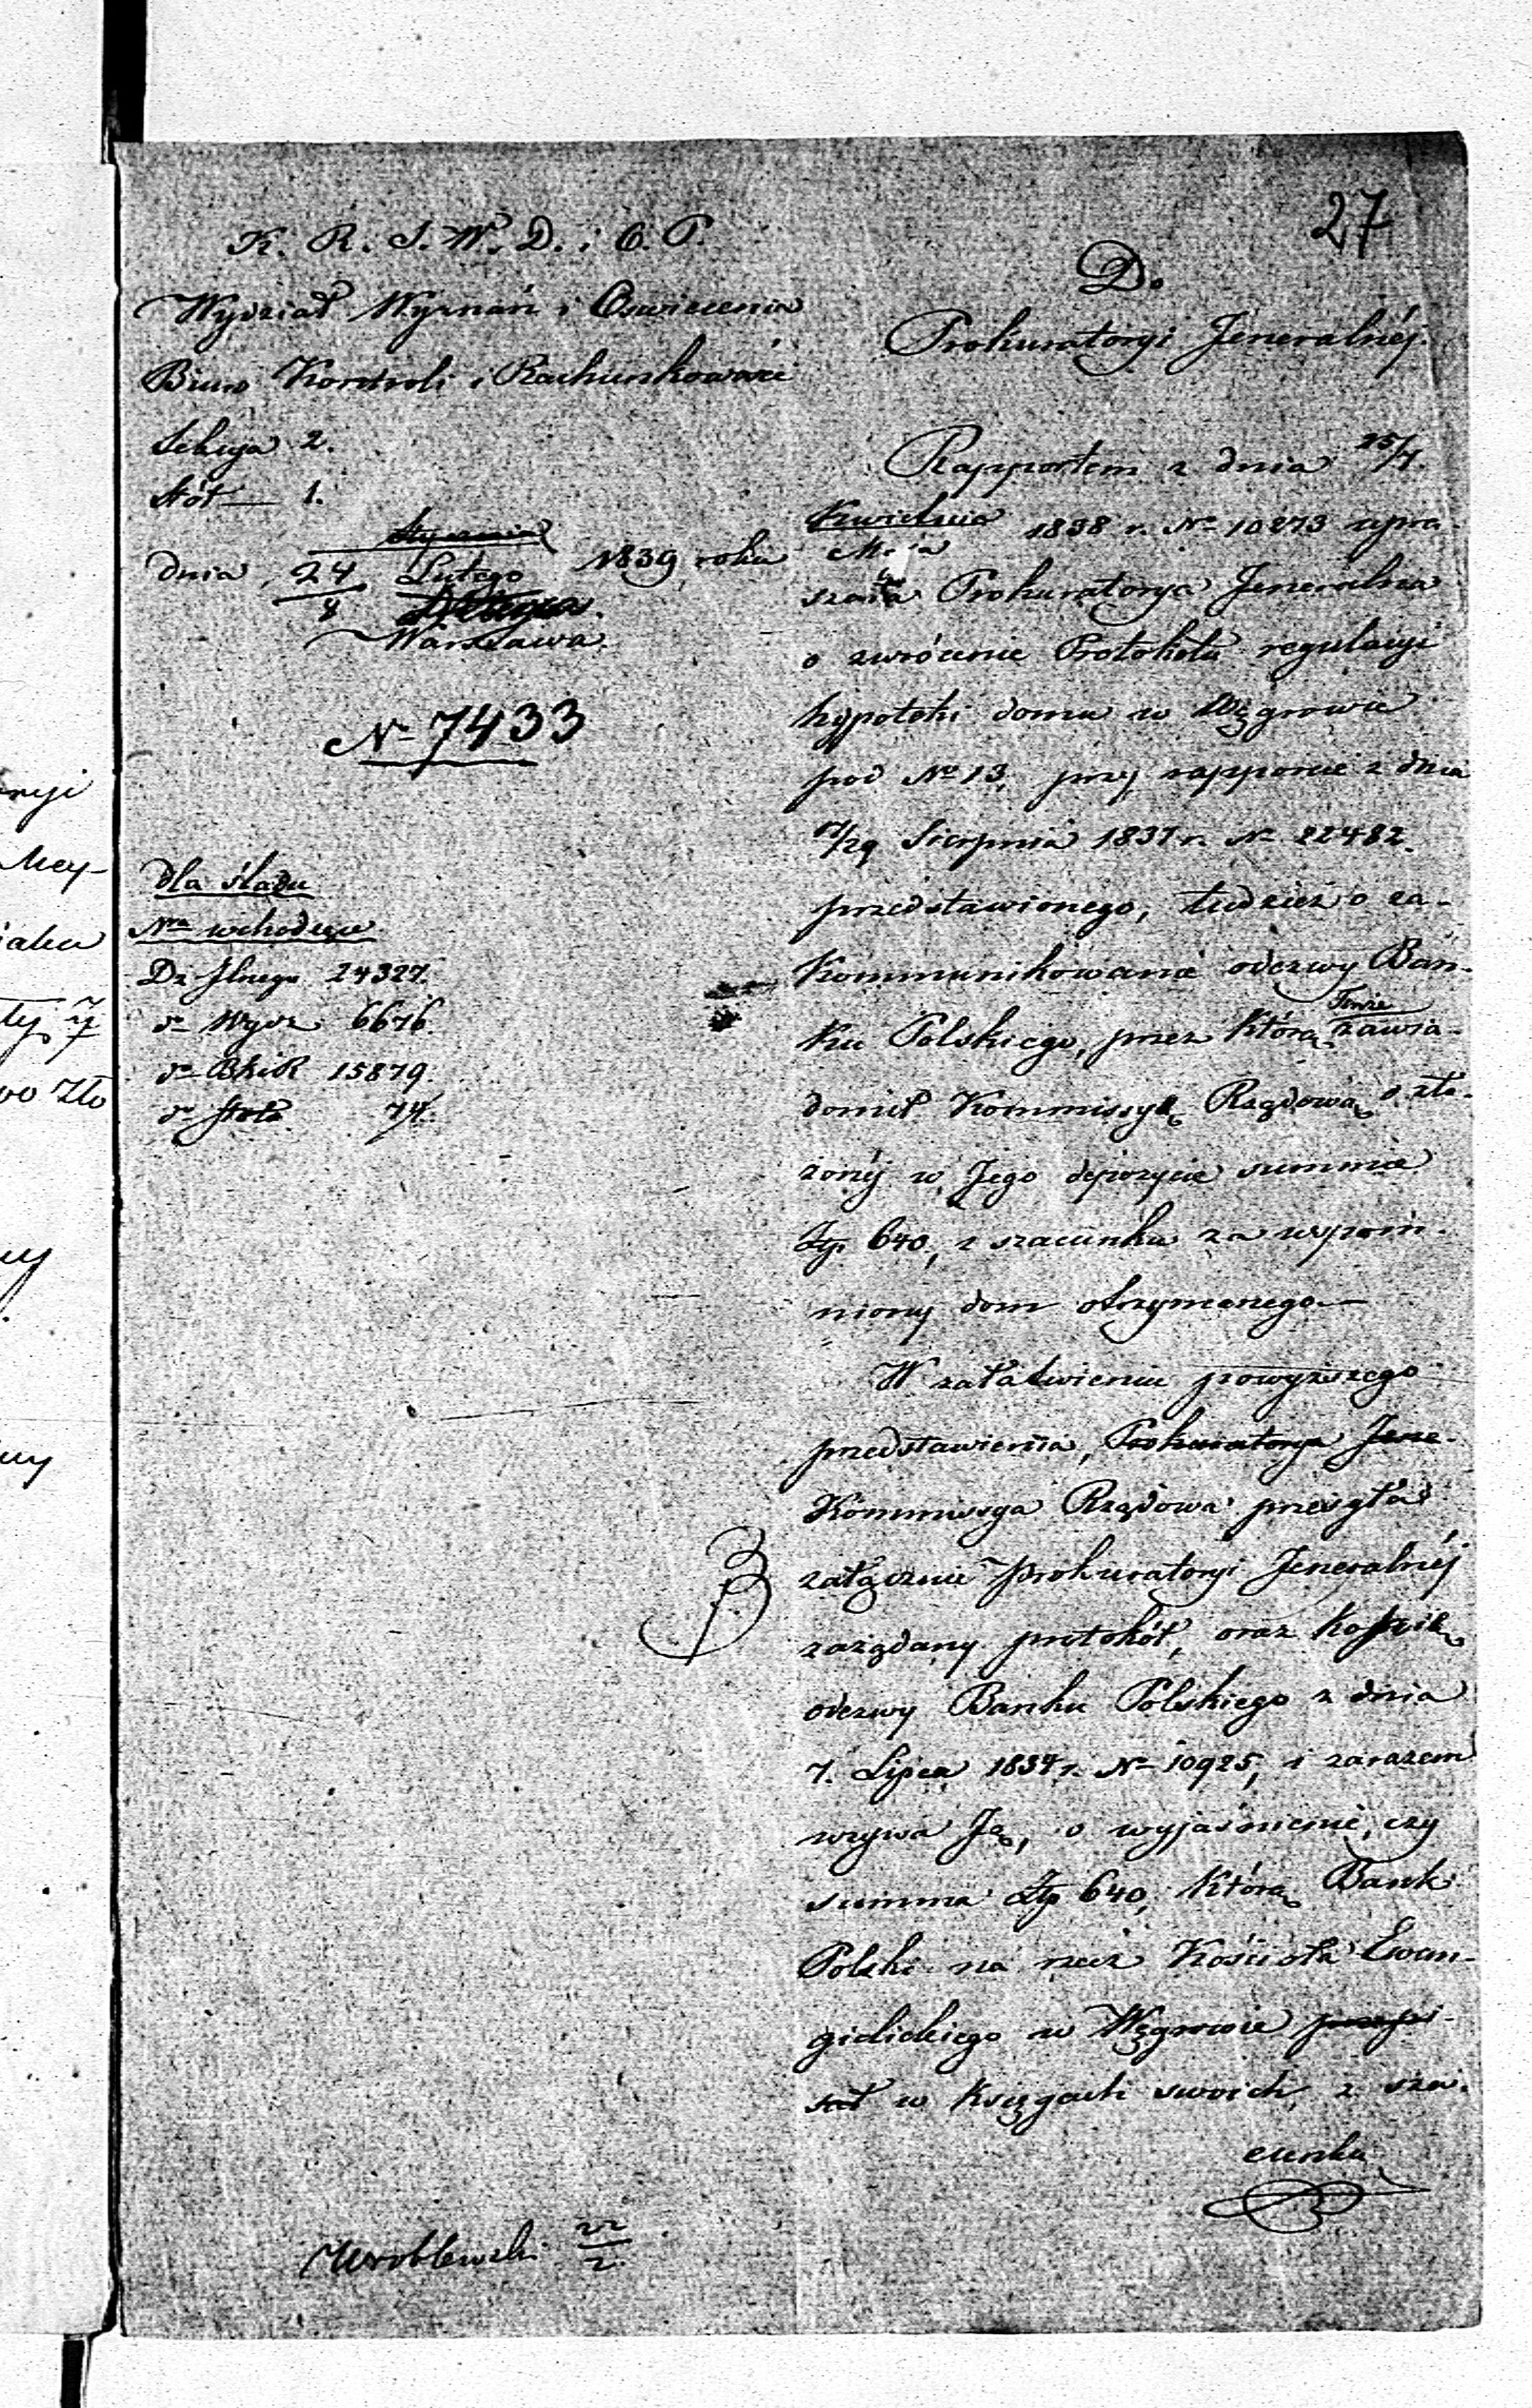 27
K. R. S. W. D. i O. P.
Wydział Wyznań i Oswiecenia
Biuro Kontroli i Rachunkowości
Sekcya 2.
Stół — 1.
Stycznia
dnia 24/8 Lutego 1839 roku
Warszawa
No 7433
dla śladu
Nra wchodzące
Dz Jlnego 24327.
do Wyoz 6676
do BKiR 15879.
do Stołu 74.
Do
Prokuratoryi Jeneralnéj.
Rapportem z dnia 25/7.
Kwietnia
Maja 1838 r. No 10273 upra-
szała Prokuratorya Jeneralna
o zwrócenie Protokołu regulacyi
hypoteki domu w Węgrowie
pod No 13, przy rapporcie z dnia
17/29 Sierpnia 1837 r. No 22482.
przedstawionego, tudzież o za-
Kommunikowanie odezwy Ban-
ku Polskiego, przez którą Tenże zawia-
domił Kommissyę Rządową o zło-
żonéj w Jego depozycie summie
Złp. 640, z szacunku za wspom-
niony dom otrzymanego.—
W załatwieniu powyższego
przedstawienia, Prokuratorya Jene-
Kommissya Rządowa przesyła
załącznie Prokuratoryi Jeneralnéj
zażądany protokół, oraz kopię
odezwy Banku Polskiego z dnia
7. Lipca 1834 r. No 10925, i zarazem
wzywa Ją, o wyjaśnienie, czy
summa Złp 640, którą Bank
Polski na rzecz Kościoła Ewan-
gielickiego w Węgrowie przepi-
sał w Księgach swoich, z sza-
cunku
Wróblewski 22/2